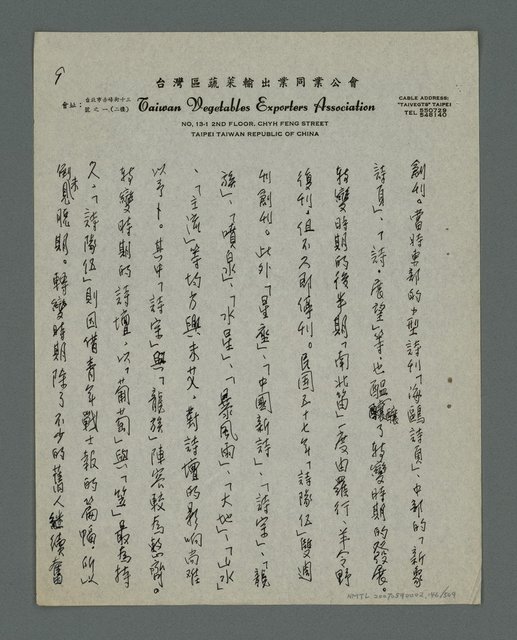 9
台灣區蔬菜輸出業同業公會
會址：台北市赤峰街十三號之一(二樓)
Taiwan Vegetables Exporters Association
CABLE ADDRESS:
"TAIVEGTS" TAIPEI
TEL 550729
546140
NO. 13-1 2ND FLOOR, CHYH FENG STREET
TAIPEI TAIWAN REPUBLIC OF CHINA
創刊。當時東部的小型詩刊「海鷗詩頁」中部的「新象
詩頁」、「詩。展望」等也醞釀了轉變時期的發展。
轉變時期的後半期「南北笛」一度由羅行、羊令野
復刊，但不久即停刊。民國五十七年「詩隊伍」雙週
刊創刊。此外「星座」、「中國新詩」、「詩宗」、「龍
族」、「噴泉」、「水星」、「暴風雨」、「大地」、「山水」
、「主流」等均方興未艾，對詩壇的影响尚難
以予卜。其中「詩宗」與「龍族」陣容較為整齊。
轉變時期的詩壇，以「葡萄」與「笠」最為持
久，「詩隊伍」則因借青年戰士報的篇幅，所以
倒未見脫期。轉變時期除了不少的舊人繼續奮
NMTL 20070590002 146/309